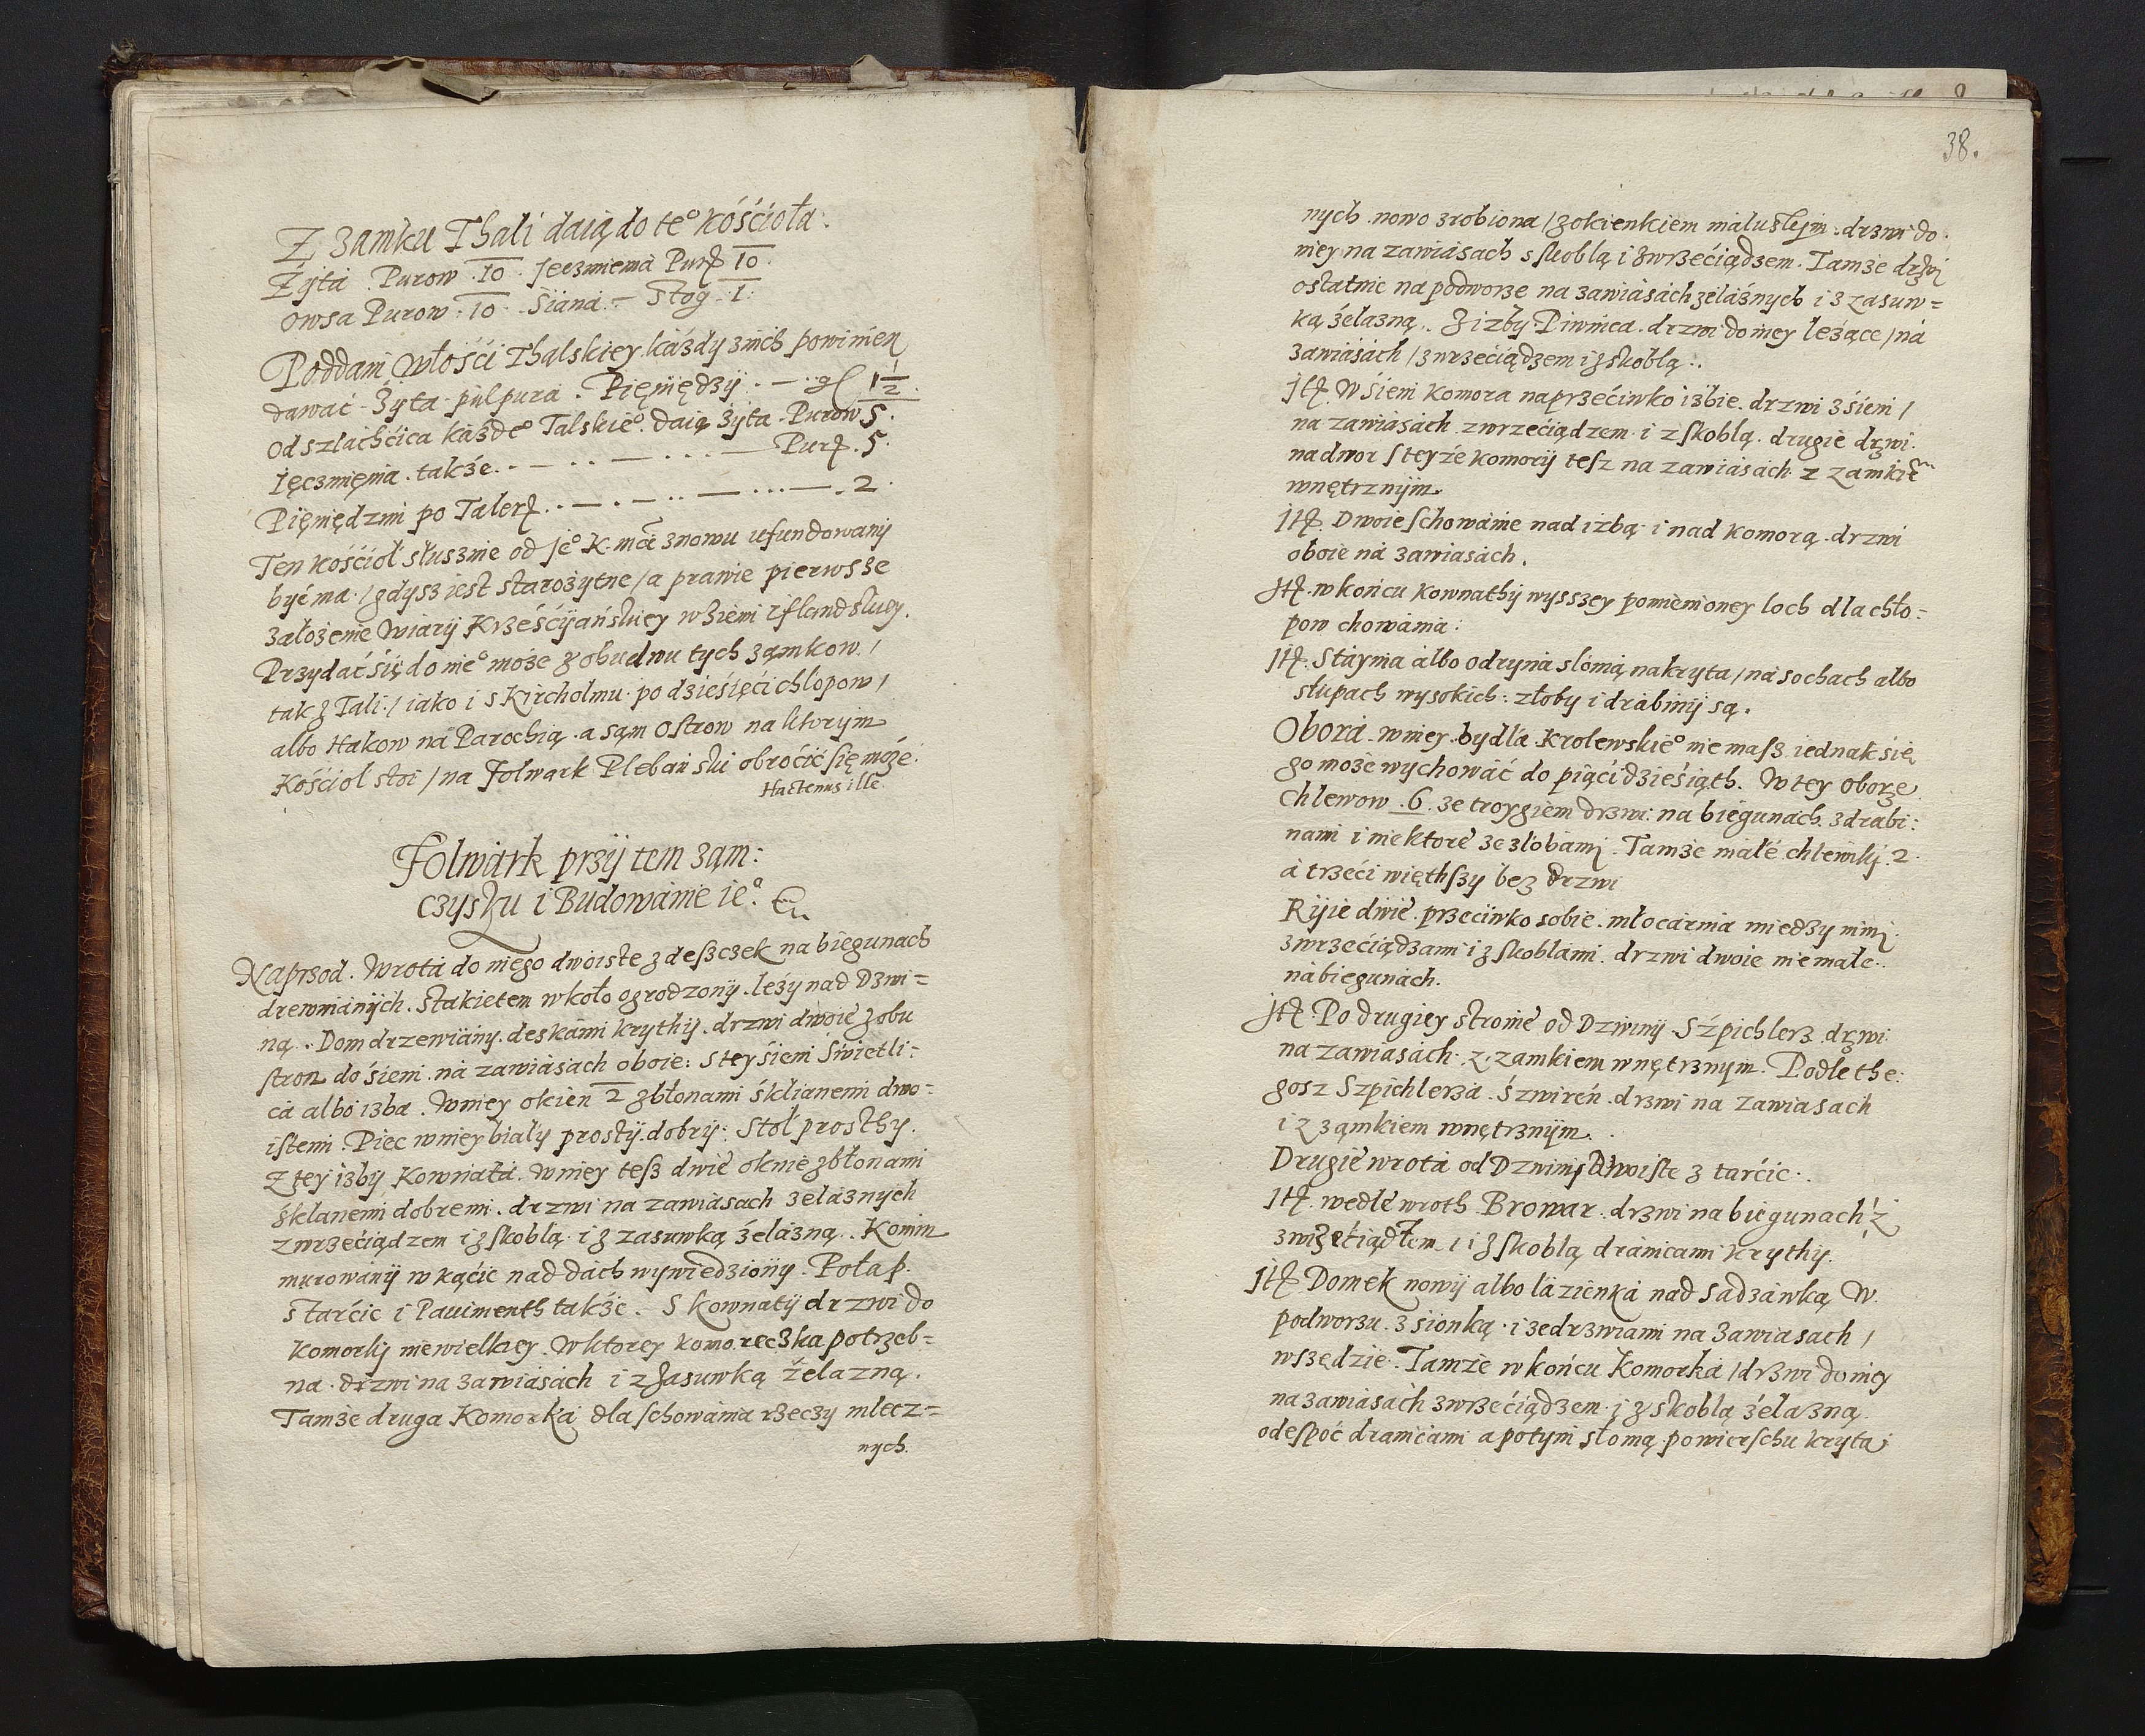 Z zamku Thali daią do te° kośćioła.
Żyta Purow 10. Jęczmienia Purƺ 10.
Owsa Purow 10. Siana – Stog 1.
Poddani włośći Thalskiey każdy znich powinien
dawać żyta pułpura. Pięniędzy . – . gl 1 1/2.
Od szlachćica każde° Talskie° daią żyta Purow 5.
Ięczmięnia także . . – . . – . . . – Purƺ. 5.
Pięniędzmi po Talerƺ. . – . – . . – . . . – . 2.
Ten kośćioł słusznie od Je° K. mći znowu ufundowany
być ma / gdysz iest starożytne / a prawie pierwsze
założenie Wiary Krześćijańskiey w ziemi Iflandskiey.
Przydać się do nie° może z obudwu tych zamkow /
tak z Tali / iako i s Kircholmu po dzieśięći chłopow /
albo Hakow na Parochią. a sąm Ostrow na ktorym
Kośćioł stoi / na Folwark Plebański obroćić się może.
Hactenus ille.
Folwark przy tem zam:
czysku i Budowanie ie°.
Naprzod. Wrota do niego dwoiste z deszczek na biegunach
drewnianych. Stakietem wkoło ogrodzony. leży nad Dzwi=
ną. Dom drzewiany. deskami krythy. drzwi dwoie z obu
stron do śieni na zawiasach oboie: s tey śieni Swietli=
ca albo izba. W niey okien 2 z błonami śklianemi dwo=
istemi. Piec w niey biały prosty. dobry: Stoł prosthy.
Z tey izby Kownata. W niey tesz dwie oknie z błonami
śklanemi dobremi. drzwi na zawiasach żelaznych
z wrzećiądzem i z skoblą i z zasuwką żelazną. Komin
murowany w kąćie nad dach wywiedziony. Połap
s tarćic i Pauimenth także. S kownaty drzwi do
komorky niewielkiey. W ktorey komoreczka potrzeb=
na. drzwi na zawiasach i z zasuwką żelazną.
Tamże druga Komorka dla schowania rzeczy mlecz=
nych.
38.
nych nowo zrobiona / z okienkiem maluskiym. drzwi do
niey na zawiasach s skoblą i z wrzećiądzem. Tamże drzwi
ostatnie na podworze na zawiasach żelaznych i z zasuw=
ką żelazną. Z izby Piwnica. drzwi do niey leżące / na
zawiasach / z wrzećiądzem i z skoblą.
Itƺ. W śieni Komora naprzećiwko izbie. drzwi z śieni /
na zawiasach z wrzećiądzem i z skoblą. drugie drzwi
na dwor s teyże komory tesz na zawiasach z zamkiē
wnętrznym.
Itƺ. Dwoie schowanie nad izbą i nad komorą. drzwi
oboie na zawiasach.
Itƺ. w końcu kownathy wysszey pomienioney loch dla chło=
pow chowania:
Itƺ. Staynia albo odryna słomą nakryta / na sochach albo
słupach wysokich: złoby i drabiny są.
Obora. w niey bydła Krolewskie° nie masz iednak się
go może wychować do piąćidzieśiąth. W tey oborze
chlewow .6. ze troygiem drzwi na biegunach z drabi:
nami i niektore ze złobami. Tamże małe chlewky .2.
a trzeći więthszy bez drzwi
Ryie dwie przećiwko sobie. młocarnia miedzy nimi
z wrzećiądzami i z skoblami. drzwi dwoie niemałe.
na biegunach.
Itƺ. Po drugiey stronie od Dzwiny Szpichlerz drzwi
na zawiasach z zamkiem wnętrznym. Podle the:
gosz Szpichlerza. Szwireń. drzwi na zawiasach
i z zamkiem wnętrznym.
Drugie wrota od Dzwiny dwoiste z tarćic.
Itƺ. wedle wroth Browar. drzwi na biegunach z
z wrzećiądłem / i z skoblą dranicami krythy.
Itƺ Domek nowy albo łazienka nad sadzawką W
podworzu z sionką i ze drzwiami na zawiasach /
wszędzie. Tamże w końcu Komorka / drzwi do niey
na zawiasach z wrzećiądzem i z skoblą żelazną.
odespoć dranicami a potym słomą powierschu kryta